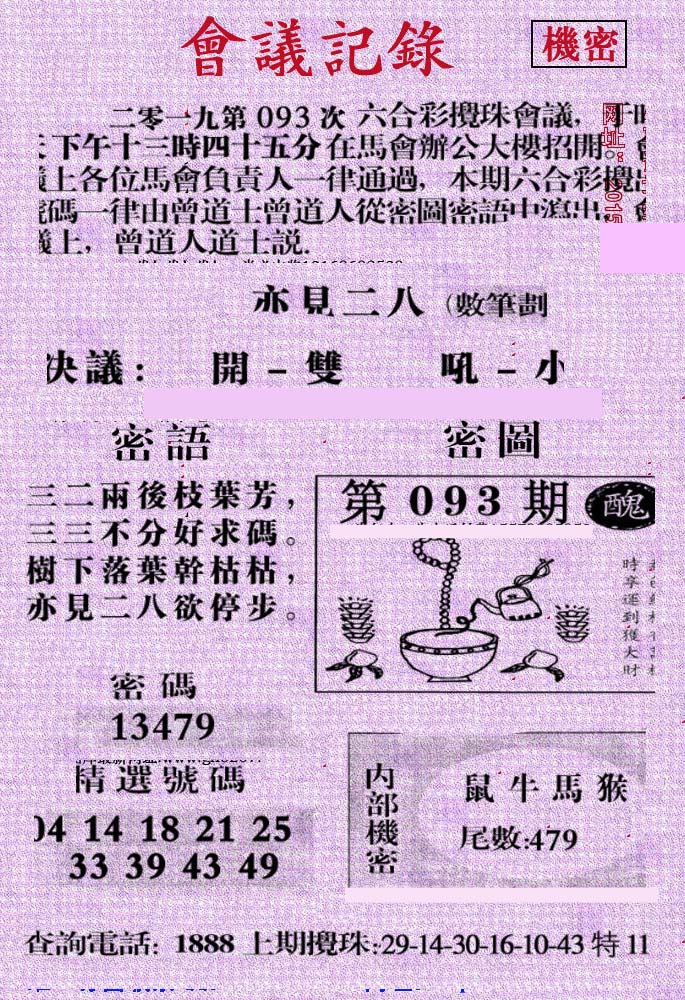 會議記錄
機密
二零一九第 093 次 六合彩攪珠會議，于
下午十三時四十五分在馬會辦公大樓招開。
上各位馬會負責人一律通過，本期六合彩攪
碼一律由曾道士曾道人從密圖密語中瀉出，
議上，曾道人道士説.
亦見二八（數筆劃
决議： 開－雙 吼－小
密語
密圖
三二兩後枝葉芳，
三三不分好求碼。
樹下落葉幹枯枯，
亦見二八欲停步。
第 093 期 醜
時享運到獲大財
密碼
13479
精選號碼
04 14 18 21 25
33 39 43 49
内部機密
鼠牛馬猴
尾數:479
查詢電話: 1888 上期攪珠:29-14-30-16-10-43 特 11